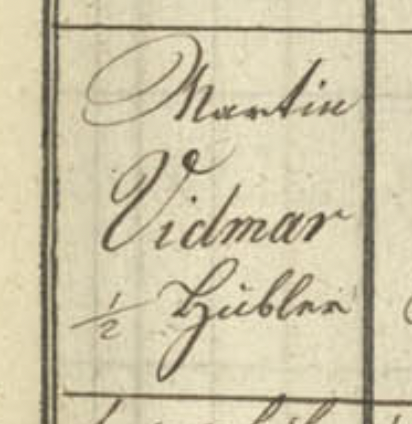 Martin
Vidmar
1/2 Hübler